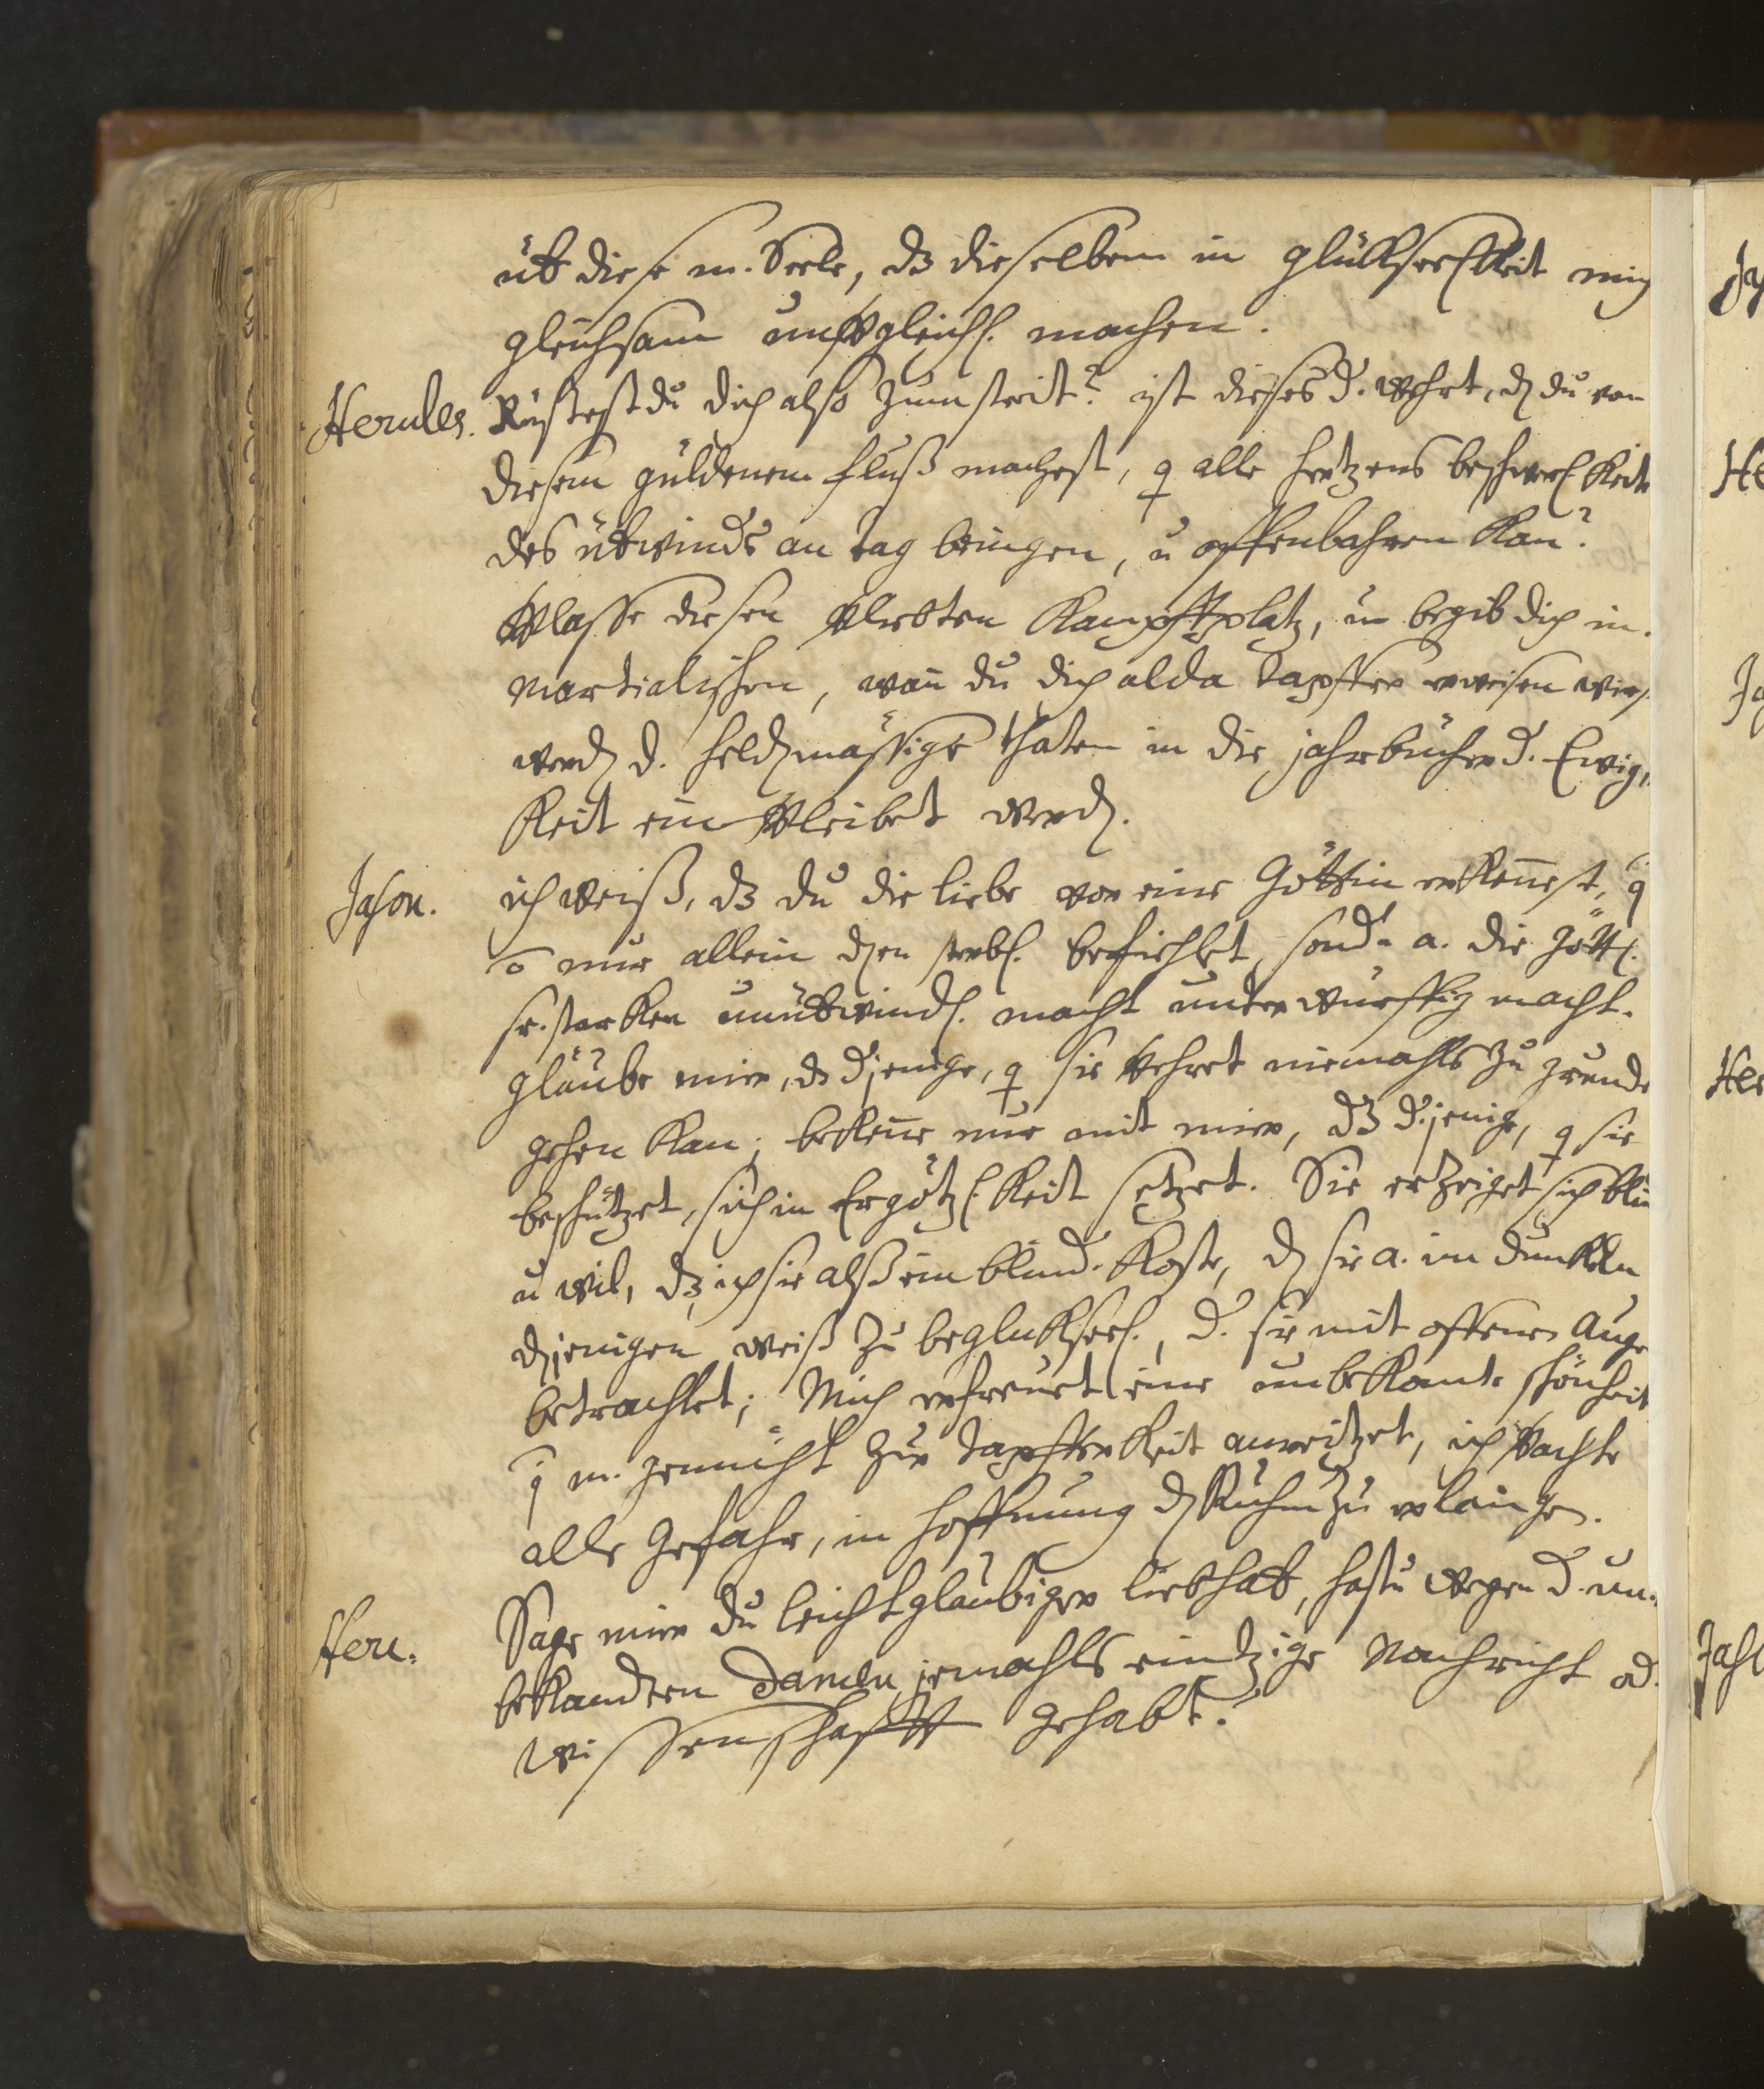 üb diese m. Seele, dz dieselben in glükseeligkeit mich
gleichsam unvergleichl. machen.
Hercules. Rüstest du dich also zum streit? ist dieses d. wehrt, dz du von
diesem güldenem fluß machest, q alle hertzens beschwerlichkeit
des überwinds an tag bringen, u offenbahren kan?
Verlasse diesen verliebten Kampfplatz, un begib dich in
martialischen, wan du dich alda dapffer erweisen wirst
werdn d. heldenmässige thaten in die jahrbücher d. Ewig,
keit einverleibet werdn.
Jason. ich weiß, dz du die liebe vor eine Göttin erkennest, q
nur allein den sterbl. befiehlet, sond. a. die Göttl.
sr. starken unüberwindl. macht underwürffig macht.
glaube mier, dz djenige, q sie verehret niemahls zu grunde
gehen kan; bekenne nur mit mier, dz d.jenige, q sie
beschützet, sich in Ergötzlichkeit setzet. Sie erzeiget sich blin
u wil, dz ich sie alß ein blind. koste, dn sie a. im dunkeln
denjenigen weiß zu beglükseel., d. sie mit offenen Auge
betrachtet; Mich erfreuet eine unbekante schönheit
q m. gemüht zur dapfferkeit anreitzet, ich verachte
alle Gefahr, in hoffnung dn Ruhm zu erlangen.
Herc. Sage mier du leichtglaubiger liebhaber, hastu wegen d. un,
bekandten Damen jemahls eintzige Nachricht od.
wissenschafft gehabt?